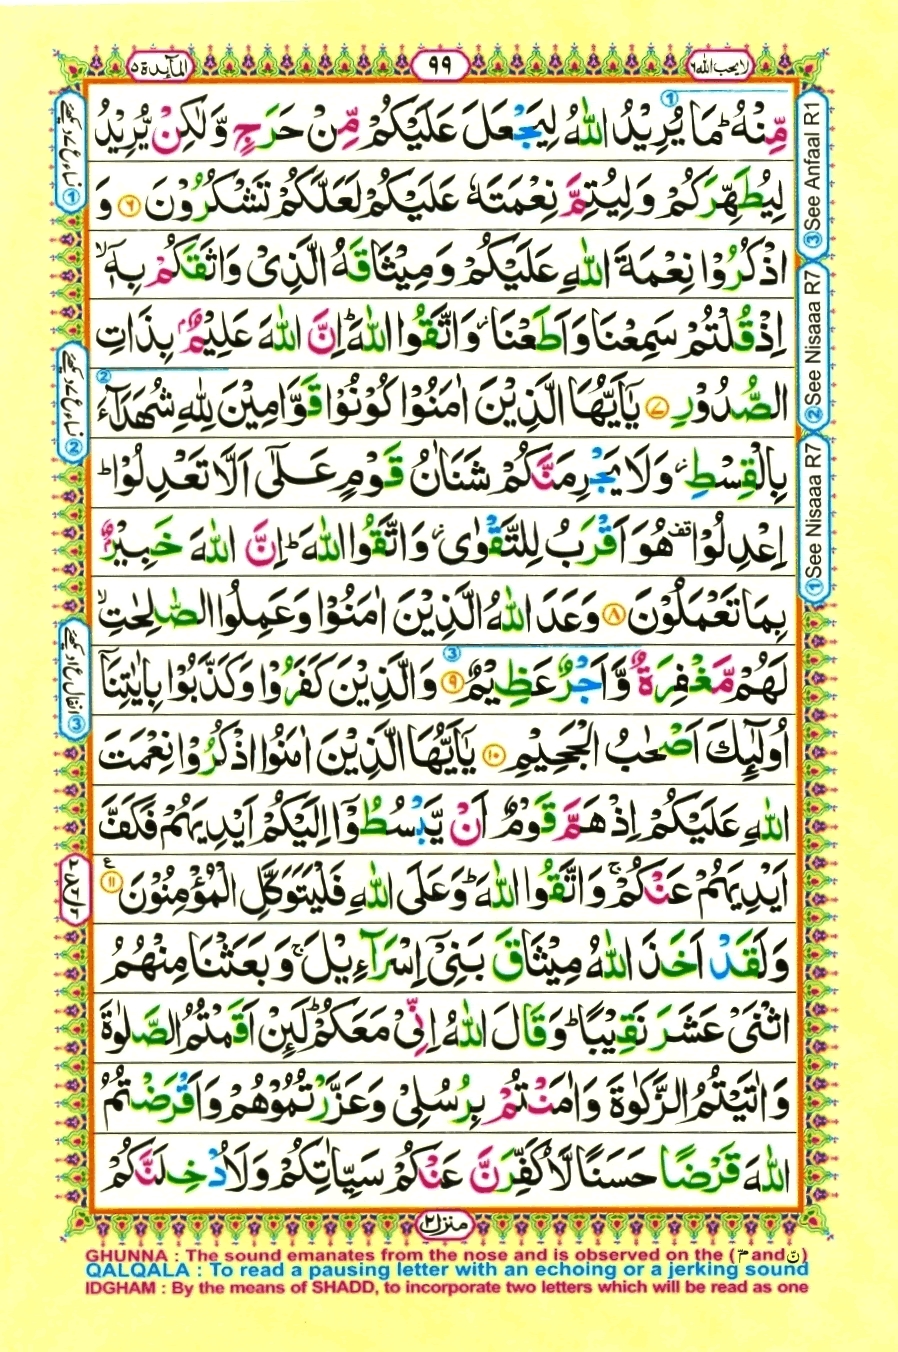 المآىٕدة ٥
٩٩
لا یحب اللہ ٦
مِّنْهُ ؕ مَا یُرِیْدُ اللّٰهُ لِیَجْعَلَ عَلَیْكُمْ مِّنْ حَرَجٍ وَّ لٰكِنْ یُّرِیْدُ
لِیُطَهِّرَكُمْ وَ لِیُتِمَّ نِعْمَتَهٗ عَلَیْكُمْ لَعَلَّكُمْ تَشْكُرُوْنَ ۶ وَ
اذْكُرُوْا نِعْمَةَ اللّٰهِ عَلَیْكُمْ وَ مِیْثَاقَهُ الَّذِیْ وَاثَقَكُمْ بِهٖۤ ۙ
اِذْ قُلْتُمْ سَمِعْنَا وَ اَطَعْنَا ؗ وَ اتَّقُوا اللّٰهَ ؕ اِنَّ اللّٰهَ عَلِیْمٌۢ بِذَاتِ
الصُّدُوْرِ ۷ یٰۤاَیُّهَا الَّذِیْنَ اٰمَنُوْا كُوْنُوْا قَوّٰمِیْنَ لِلّٰهِ شُهَدَآءَ
بِالْقِسْطِ ؗ وَ لَا یَجْرِمَنَّكُمْ شَنَاٰنُ قَوْمٍ عَلٰۤى اَلَّا تَعْدِلُوْا ؕ
اِعْدِلُوْا ۫ هُوَ اَقْرَبُ لِلتَّقْوٰى ؗ وَ اتَّقُوا اللّٰهَ ؕ اِنَّ اللّٰهَ خَبِیْرٌۢ
بِمَا تَعْمَلُوْنَ ۸ وَعَدَ اللّٰهُ الَّذِیْنَ اٰمَنُوْا وَ عَمِلُوا الصّٰلِحٰتِ ۙ
لَهُمْ مَّغْفِرَةٌ وَّ اَجْرٌ عَظِیْمٌ ۹ وَ الَّذِیْنَ كَفَرُوْا وَ كَذَّبُوْا بِاٰیٰتِنَاۤ
اُولٰٓىِٕكَ اَصْحٰبُ الْجَحِیْمِ ۱۰ یٰۤاَیُّهَا الَّذِیْنَ اٰمَنُوا اذْكُرُوْا نِعْمَتَ
اللّٰهِ عَلَیْكُمْ اِذْ هَمَّ قَوْمٌ اَنْ یَّبْسُطُوْۤا اِلَیْكُمْ اَیْدِیَهُمْ فَكَفَّ
اَیْدِیَهُمْ عَنْكُمْ ۚ وَ اتَّقُوا اللّٰهَ ؕ وَ عَلَى اللّٰهِ فَلْیَتَوَكَّلِ الْمُؤْمِنُوْنَ ۱۱
وَ لَقَدْ اَخَذَ اللّٰهُ مِیْثَاقَ بَنِیْۤ اِسْرَآءِیْلَ ۚ وَ بَعَثْنَا مِنْهُمُ
اثْنَیْ عَشَرَ نَقِیْبًا ؕ وَ قَالَ اللّٰهُ اِنِّیْ مَعَكُمْ ؕ لَىِٕنْ اَقَمْتُمُ الصَّلٰوةَ
وَ اٰتَیْتُمُ الزَّكٰوةَ وَ اٰمَنْتُمْ بِرُسُلِیْ وَ عَزَّرْتُمُوْهُمْ وَ اَقْرَضْتُمُ
اللّٰهَ قَرْضًا حَسَنًا لَّاُكَفِّرَنَّ عَنْكُمْ سَیِّاٰتِكُمْ وَ لَاُدْخِلَنَّكُمْ
منزل ٢
③ See Anfaal R1
② See Nisaaa R7
① See Nisaaa R7
GHUNNA : The sound emanates from the nose and is observed on the (مّ and نّ)
QALQALA : To read a pausing letter with an echoing or a jerking sound
IDGHAM : By the means of SHADD, to incorporate two letters which will be read as one